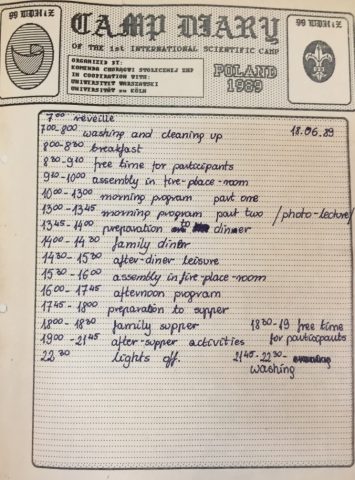 ZHiZWM 66
CAMP DIARY
ZHiZWM 66
OF THE 1st INTERNATIONAL SCIENTIFIC CAMP
ORGANIZED BY:
KOMENDA CHORĄGWI STOŁECZNEJ ZHP
IN COOPERATION WITH:
UNIWERSYTET WARSZAWSKI
UNIVERSITÄT zu KÖLN
POLAND
1989
7⁰⁰ reveille
18.06.89
7⁰⁰-8⁰⁰ washing and cleaning up
8⁰⁰-8³⁰ breakfast
8³⁰-9¹⁰ free time for participants
9¹⁰-10⁰⁰ assembly in fire-place-room
10⁰⁰-13⁰⁰ morning program part one
13⁰⁰-13⁴⁵ morning program part two /photo-lecture/
13⁴⁵-14⁰⁰ preparation to dinner
14⁰⁰-14³⁰ family diner
14³⁰-15³⁰ after-diner leisure
15³⁰-16⁰⁰ assembly in fire-place-room
16⁰⁰-17⁴⁵ afternoon program
17⁴⁵-18⁰⁰ preparation to supper
18⁰⁰-18³⁰ family supper 18³⁰-19 free time
19⁰⁰-21⁴⁵ after-supper activities for participants
22³⁰ lights off. 21⁴⁵-22³⁰-
washing